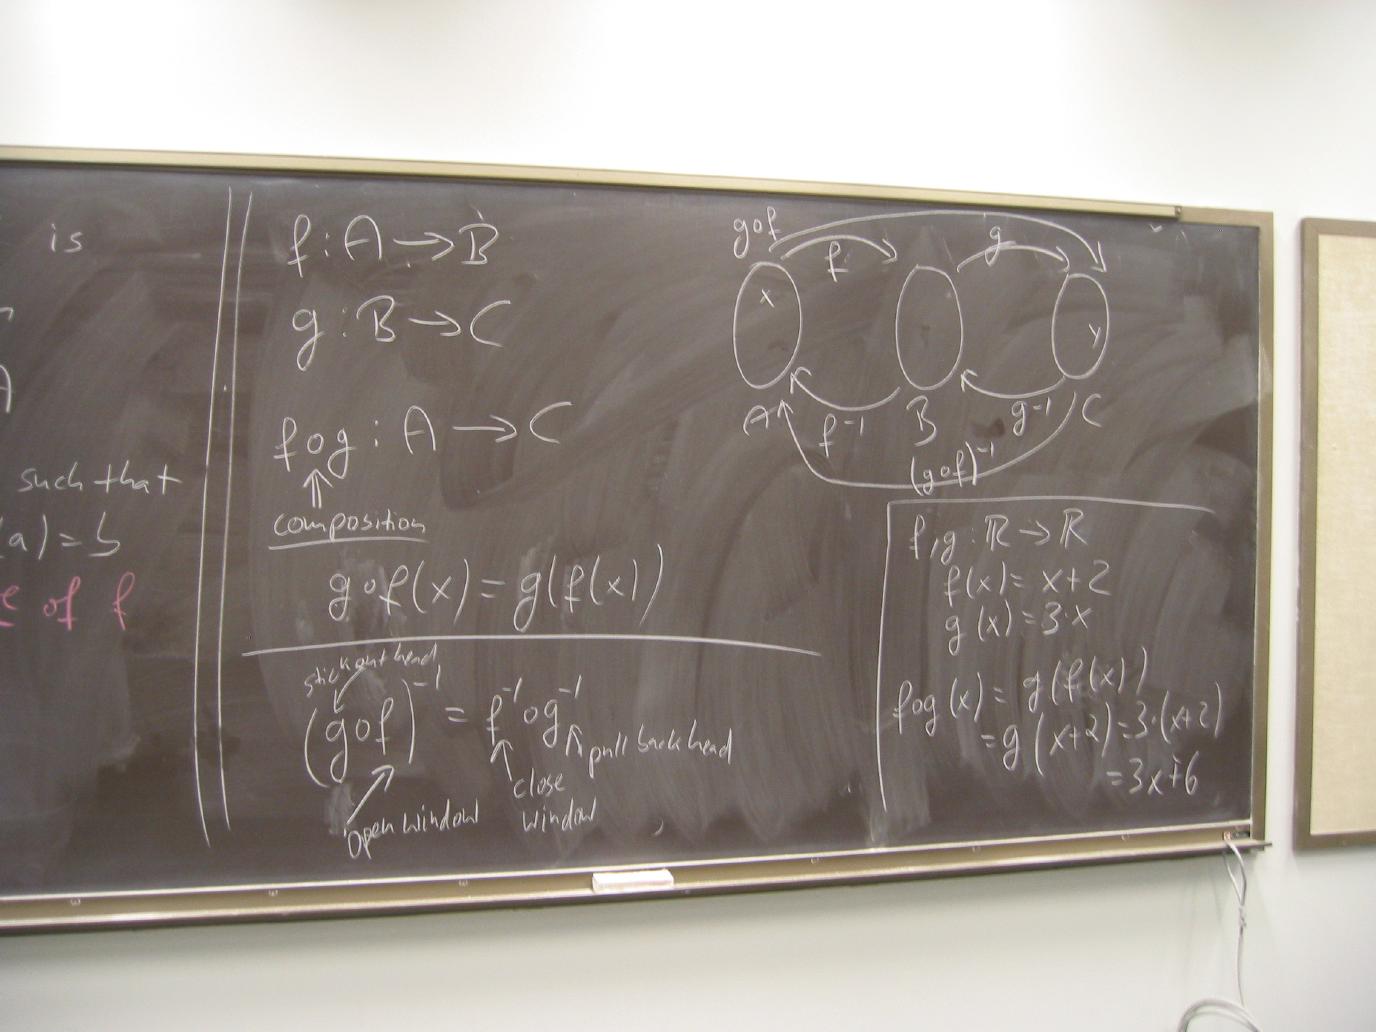 is
A
such that
(a) = b
e of f
f : A → B
g : B → C
f∘g : A → C
composition
g∘f(x) = g(f(x))
stick out head
(g∘f)⁻¹ = f⁻¹∘g⁻¹
pull back head
close
window
open window
g∘f
f
g
x
y
A
f⁻¹
B
g⁻¹
C
(g∘f)⁻¹
f,g : ℝ → ℝ
f(x) = x+2
g(x) = 3·x
f∘g(x) = g(f(x))
= g(x+2) = 3·(x+2)
= 3x+6